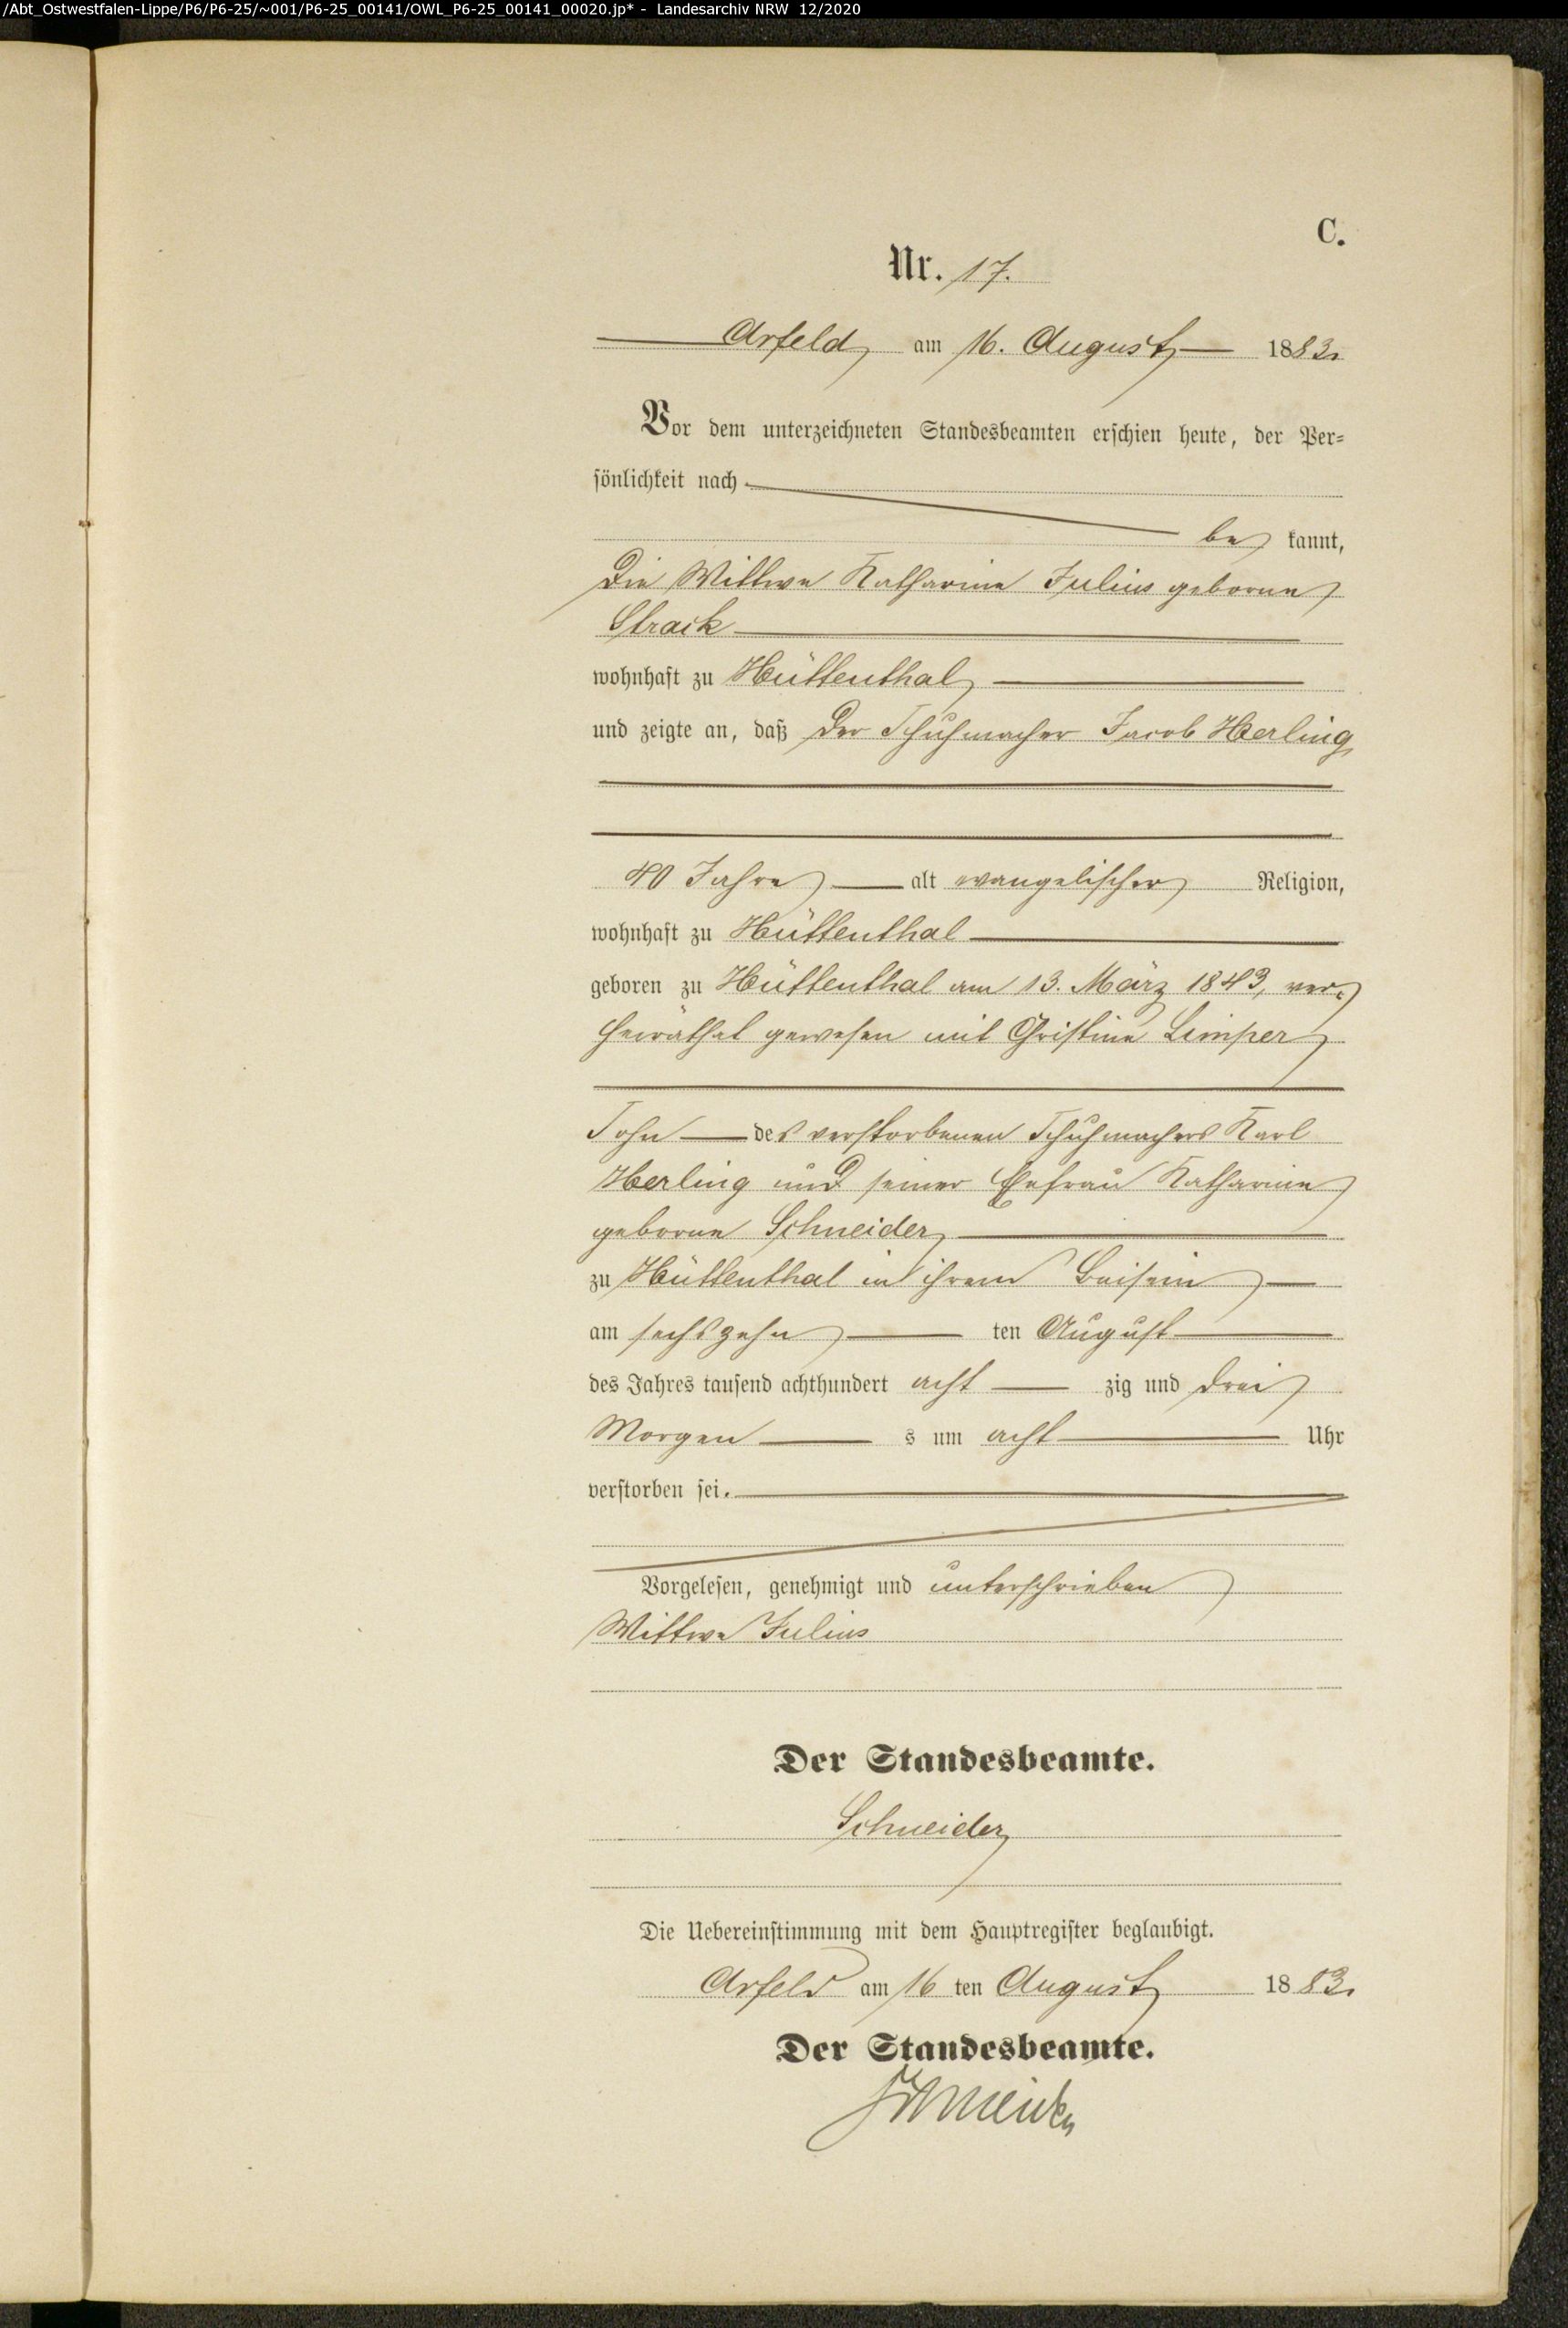 /Abt_Ostwestfalen-Lippe/P6/P6-25/~001/P6-25_00141/OWL_P6-25_00141_00020.jp* - Landesarchiv NRW 12/2020
C.
Nr. 17.
Arfeld am 16. August 1883.
Vor dem unterzeichneten Standesbeamten erschien heute, der Per-
sönlichkeit nach
be kannt,
die Wittwe Katharine Julius geborne
Strack
wohnhaft zu Hüttenthal
und zeigte an, daß der Schuhmacher Jacob Herling
40 Jahre alt evangelischer Religion,
wohnhaft zu Hüttenthal
geboren zu Hüttenthal am 13. März 1843, ver-
heirathet gewesen mit Christine Limper
Sohn des verstorbenen Schuhmachers Karl
Herling und seiner Ehefrau Katharine
geborne Schneider
zu Hüttenthal in ihrem Beisein
am sechszehn ten August
des Jahres tausend achthundert acht zig und drei
Morgen s um acht Uhr
verstorben sei.
Vorgelesen, genehmigt und unterschrieben
Wittwe Julius
Der Standesbeamte.
Schneider
Die Uebereinstimmung mit dem Hauptregister beglaubigt.
Arfeld am 16 ten August 1883.
Der Standesbeamte.
Schneider